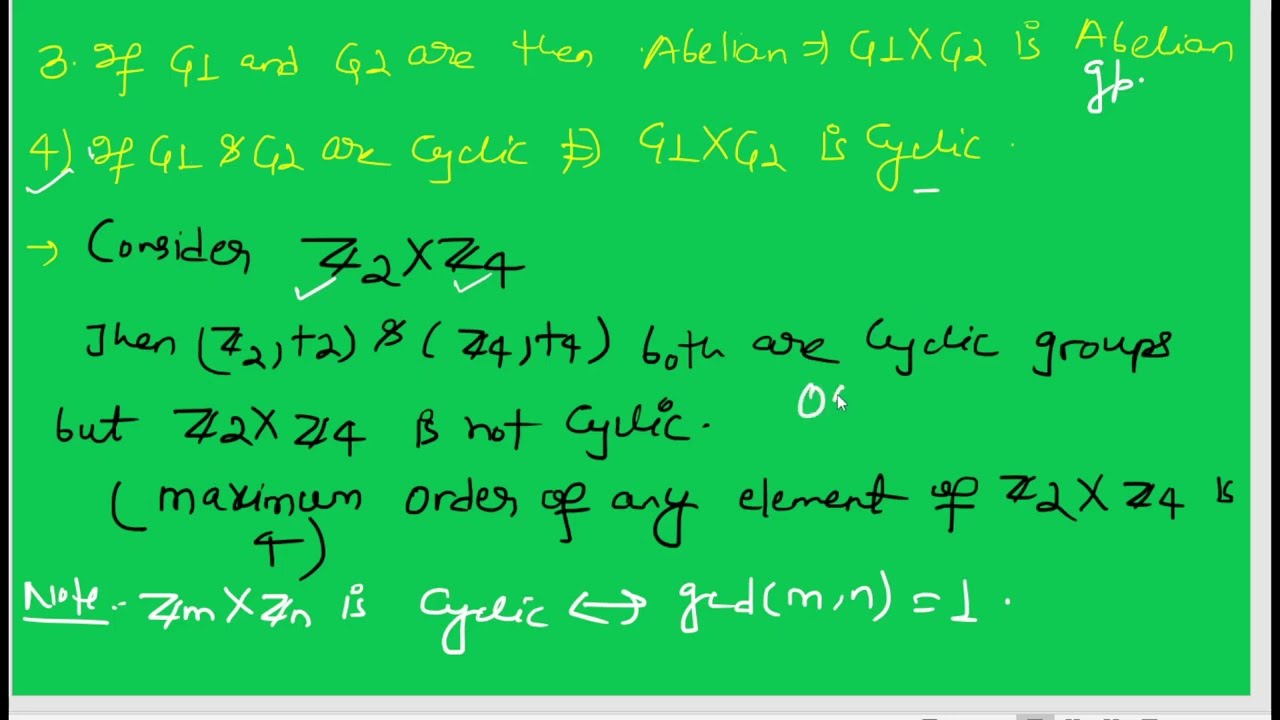 3. If G1 and G2 are then Abelian ⇒ G1XG2 is Abelian
gp.
4) If G1 & G2 are Cyclic ⇏ G1XG2 is Cyclic.
→ Consider ℤ2Xℤ4
Then (ℤ2,+2) & (ℤ4,+4) both are Cyclic groups
but ℤ2Xℤ4 is not Cyclic.
(maximum order of any element of ℤ2Xℤ4 is
4)
Note:- ℤm X ℤn is Cyclic ↔ gcd(m,n) = 1.